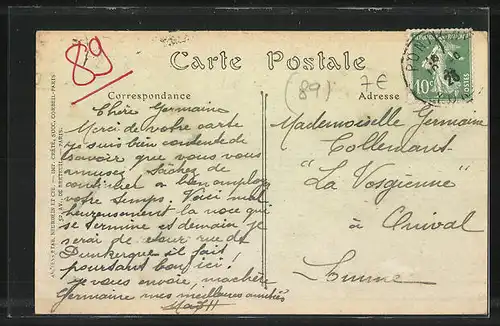 89
Carte Postale
(89)
7€
Correspondance
Adresse
10c
POSTES
Chère Germaine
Merci de votre carte
je suis bien contente de
savoir que vous vous
amusez. Tâchez de
continuer a bien employer
votre temps. Voici mal
heureusement la noce qui
se termine et demain je
serai de retour rue de
Dunkerque il fait
pourtant bon ici!
je vous envoie, ma chère
Germaine mes meilleures amitiés
Mademoiselle Germaine
Collemant
"La Vosgienne"
à Onival
Somme